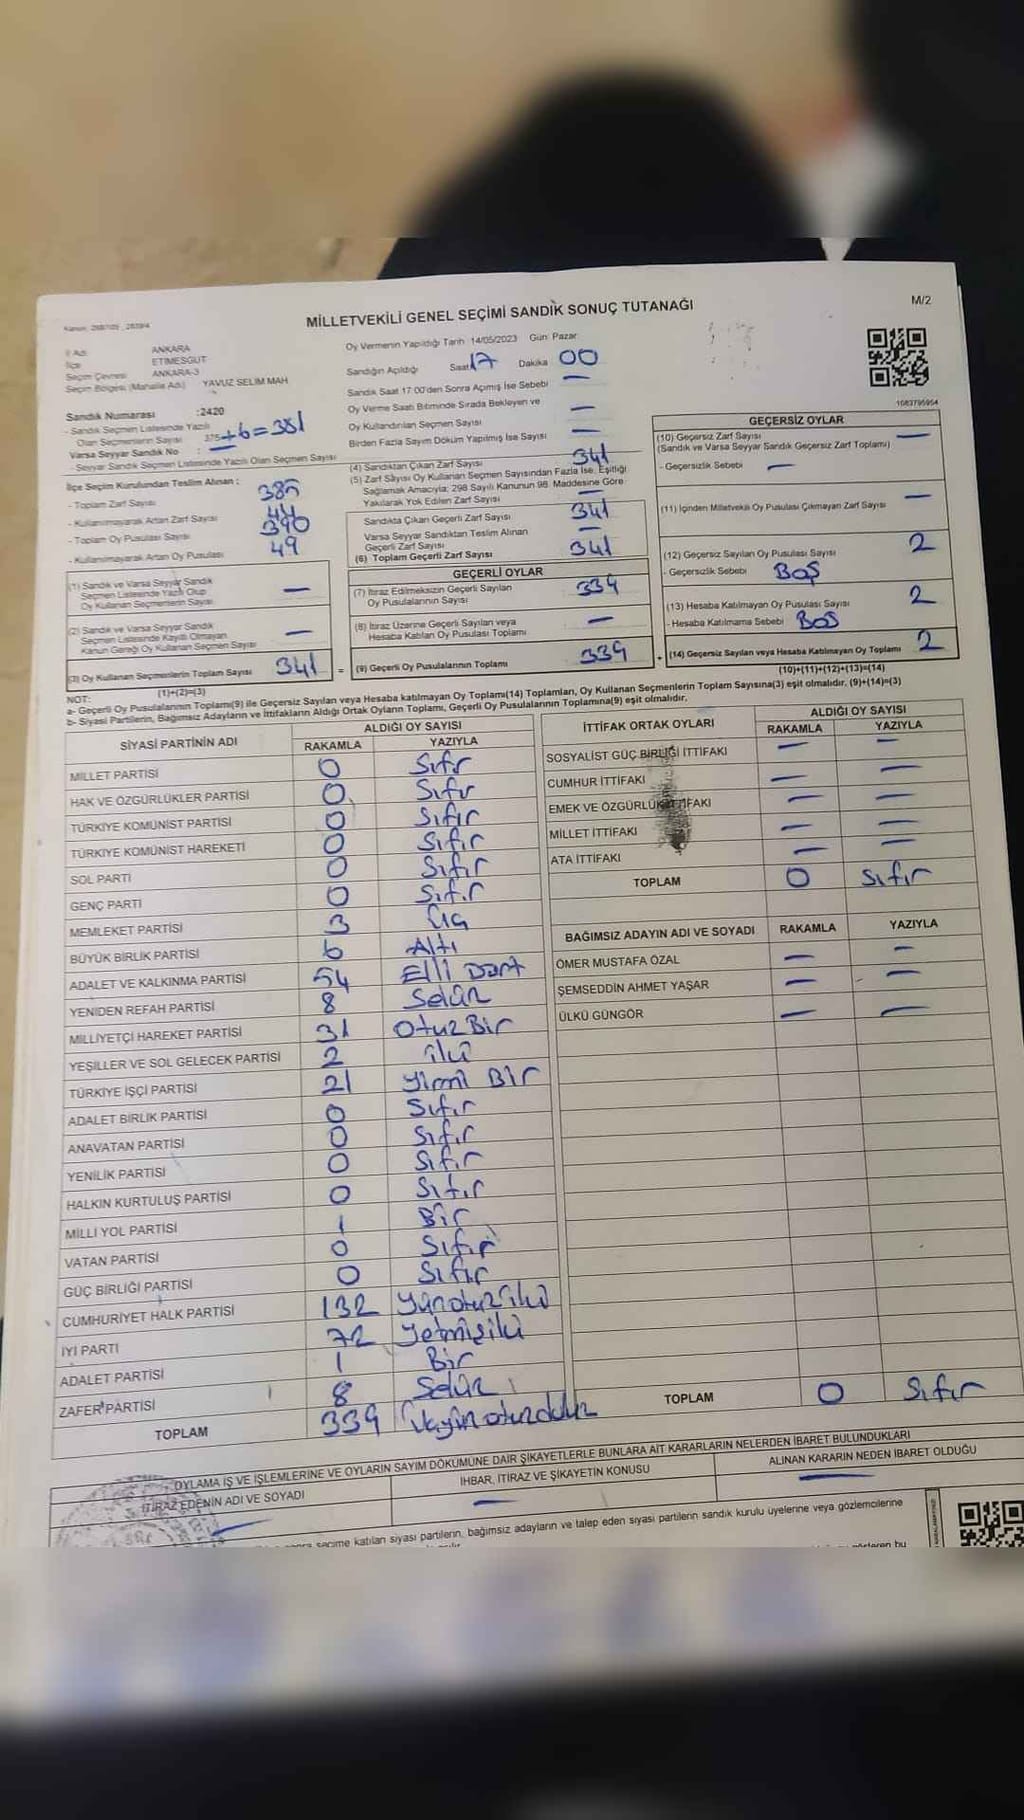 MİLLETVEKİLİ GENEL SEÇİMİ SANDIK SONUÇ TUTANAĞI
M/2
İl Adı ANKARA
İlçe ETİMESGUT
Seçim Çevresi ANKARA-3
Seçim Bölgesi (Mahalle Adı) YAVUZ SELİM MAH
Oy Vermenin Yapıldığı Tarih 14/05/2023 Gün: Pazar
Sandığın Açıldığı Saat 17 Dakika 00
Sandık Saat 17:00'den Sonra Açımış İse Sebebi —
Oy Verme Saati Bitiminde Sırada Bekleyen ve
Oy Kullandırılan Seçmen Sayısı —
Birden Fazla Sayım Döküm Yapılmış İse Sayısı —
1083795954
Sandık Numarası :2420
- Sandık Seçmen Listesinde Yazılı
Olan Seçmenlerin Sayısı 375+6=381
Varsa Seyyar Sandık No : —
- Seyyar Sandık Seçmen Listesinde Yazılı Olan Seçmen Sayısı
İlçe Seçim Kurulundan Teslim Alınan :
- Toplam Zarf Sayısı 385
- Kullanılmayarak Artan Zarf Sayısı 44
- Toplam Oy Pusulası Sayısı 390
- Kullanılmayarak Artan Oy Pusulası 49
(1) Sandık ve Varsa Seyyar Sandık
Seçmen Listesinde Yazılı Olup
Oy Kullanan Seçmenlerin Sayısı —
(2) Sandık ve Varsa Seyyar Sandık
Seçmen Listesinde Kayıtlı Olmayan
Kanun Gereği Oy Kullanan Seçmen Sayısı —
(3) Oy Kullanan Seçmenlerin Toplam Sayısı 341 =
(1)+(2)=(3)
(4) Sandıktan Çıkan Zarf Sayısı 341
(5) Zarf Sayısı Oy Kullanan Seçmen Sayısından Fazla İse, Eşitliği
Sağlamak Amacıyla; 298 Sayılı Kanunun 98. Maddesine Göre
Yakılarak Yok Edilen Zarf Sayısı —
Sandıkta Çıkan Geçerli Zarf Sayısı 341
Varsa Seyyar Sandıktan Teslim Alınan
Geçerli Zarf Sayısı —
(6) Toplam Geçerli Zarf Sayısı 341
GEÇERLİ OYLAR
(7) İtiraz Edilmeksizin Geçerli Sayılan
Oy Pusulalarının Sayısı 339
(8) İtiraz Üzerine Geçerli Sayılan veya
Hesaba Katılan Oy Pusulası Toplamı —
(9) Geçerli Oy Pusulalarının Toplamı 339 +
GEÇERSİZ OYLAR
(10) Geçersiz Zarf Sayısı —
(Sandık ve Varsa Seyyar Sandık Geçersiz Zarf Toplamı)
- Geçersizlik Sebebi —
(11) İçinden Milletvekili Oy Pusulası Çıkmayan Zarf Sayısı —
(12) Geçersiz Sayılan Oy Pusulası Sayısı 2
- Geçersizlik Sebebi BOŞ
(13) Hesaba Katılmayan Oy Pusulası Sayısı 2
- Hesaba Katılmama Sebebi BOŞ
(14) Geçersiz Sayılan veya Hesaba Katılmayan Oy Toplamı 2
(10)+(11)+(12)+(13)=(14)
NOT:
a- Geçerli Oy Pusulalarının Toplamı(9) ile Geçersiz Sayılan veya Hesaba katılmayan Oy Toplamı(14) Toplamları, Oy Kullanan Seçmenlerin Toplam Sayısına(3) eşit olmalıdır. (9)+(14)=(3)
b- Siyasi Partilerin, Bağımsız Adayların ve İttifakların Aldığı Ortak Oyların Toplamı, Geçerli Oy Pusulalarının Toplamına(9) eşit olmalıdır.
SİYASİ PARTİNİN ADI ALDIĞI OY SAYISI
RAKAMLA YAZIYLA
MİLLET PARTİSİ 0 Sıfır
HAK VE ÖZGÜRLÜKLER PARTİSİ 0 Sıfır
TÜRKİYE KOMÜNİST PARTİSİ 0 Sıfır
TÜRKİYE KOMÜNİST HAREKETİ 0 Sıfır
SOL PARTİ 0 Sıfır
GENÇ PARTİ 0 Sıfır
MEMLEKET PARTİSİ 3 Üç
BÜYÜK BİRLİK PARTİSİ 6 Altı
ADALET VE KALKINMA PARTİSİ 54 Elli Dört
YENİDEN REFAH PARTİSİ 8 Sekiz
MİLLİYETÇİ HAREKET PARTİSİ 31 Otuz Bir
YEŞİLLER VE SOL GELECEK PARTİSİ 2 iki
TÜRKİYE İŞÇİ PARTİSİ 21 Yirmi Bir
ADALET BİRLİK PARTİSİ 0 Sıfır
ANAVATAN PARTİSİ 0 Sıfır
YENİLİK PARTİSİ 0 Sıfır
HALKIN KURTULUŞ PARTİSİ 0 Sıfır
MİLLİ YOL PARTİSİ 1 Bir
VATAN PARTİSİ 0 Sıfır
GÜÇ BİRLİĞİ PARTİSİ 0 Sıfır
CUMHURİYET HALK PARTİSİ 132 Yüzotuziki
İYİ PARTİ 72 Yetmişiki
ADALET PARTİSİ 1 Bir
ZAFER PARTİSİ 8 Sekiz
TOPLAM 339 Üçyüzotuzdokuz
İTTİFAK ORTAK OYLARI ALDIĞI OY SAYISI
RAKAMLA YAZIYLA
SOSYALİST GÜÇ BİRLİĞİ İTTİFAKI — —
CUMHUR İTTİFAKI — —
EMEK VE ÖZGÜRLÜK İTTİFAKI — —
MİLLET İTTİFAKI — —
ATA İTTİFAKI — —
TOPLAM 0 Sıfır
BAĞIMSIZ ADAYIN ADI VE SOYADI RAKAMLA YAZIYLA
ÖMER MUSTAFA ÖZAL — —
ŞEMSEDDİN AHMET YAŞAR — —
ÜLKÜ GÜNGÖR — —
TOPLAM 0 Sıfır
OYLAMA İŞ VE İŞLEMLERİNE VE OYLARIN SAYIM DÖKÜMÜNE DAİR ŞİKAYETLERLE BUNLARA AİT KARARLARIN NELERDEN İBARET BULUNDUKLARI
İTİRAZ EDENİN ADI VE SOYADI İHBAR, İTİRAZ VE ŞİKAYETİN KONUSU ALINAN KARARIN NEDEN İBARET OLDUĞU
— — —
seçime katılan siyasi partilerin, bağımsız adayların ve talep eden siyasi partilerin sandık kurulu üyelerine veya gözlemcilerine